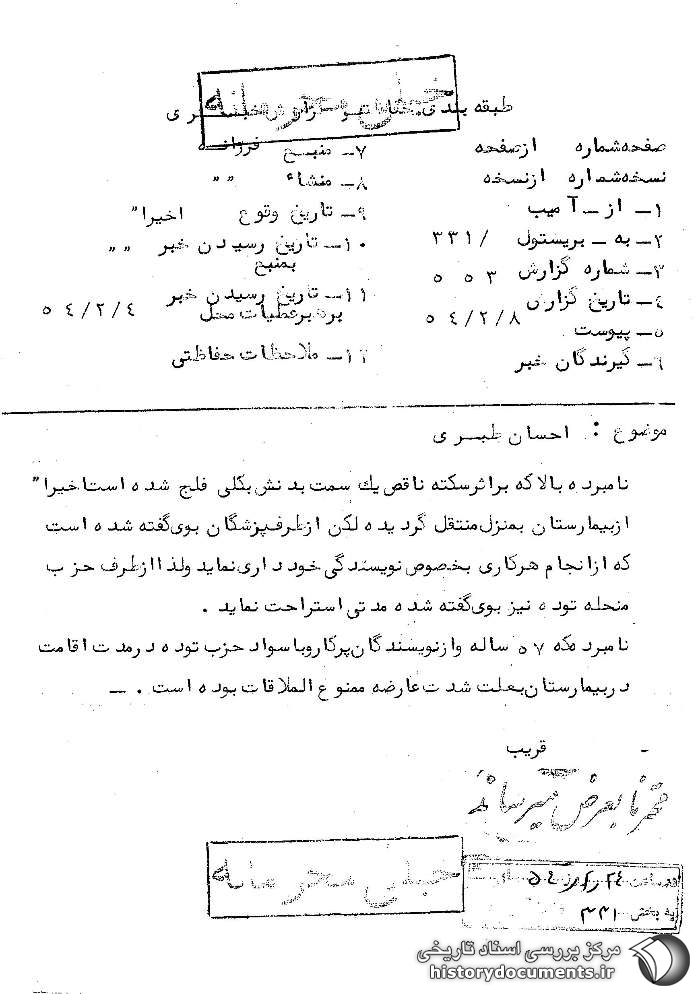 خیلی محرمانه
طبقه بندی
خبری
صفحه شماره از صفحه
نسخه شماره از نسخه
۱- از - آ میب
۲- به - بریستول / ۳۳۱
۳- شماره گزارش ۵۰۳
۴- تاریخ گزارش ۵۴/۲/۸
۵- پیوست
۶- گیرندگان خبر
۷- منبع
۸- منشاء " "
۹- تاریخ وقوع اخیرا"
۱۰- تاریخ رسیدن خبر " "
بمنبع
۱۱- تاریخ رسیدن خبر
برهبر عملیات محل ۵۴/۲/۴
۱۲- ملاحظات حفاظتی
موضوع : احسان طبری
نامبرده بالا که براثر سکته ناقص یك سمت بدنش بکلی فلج شده است اخیرا"
از بیمارستان بمنزل منتقل گردیده لکن از طرف پزشگان بوی گفته شده است
که از انجام هرکاری بخصوص نویسندگی خودداری نماید ولذا از طرف حزب
منحله توده نیز بوی گفته شده مدتی استراحت نماید .
نامبرده که ۵۷ ساله واز نویسندگان پرکار و با سواد حزب توده در مدت اقامت
در بیمارستان بعلت شدت عارضه ممنوع الملاقات بوده است . -
- قریب
محترما بعرض میرساند
خیلی محرمانه
به بخش ۳۳۱
مرکز بررسی اسناد تاریخی
historydocuments.ir